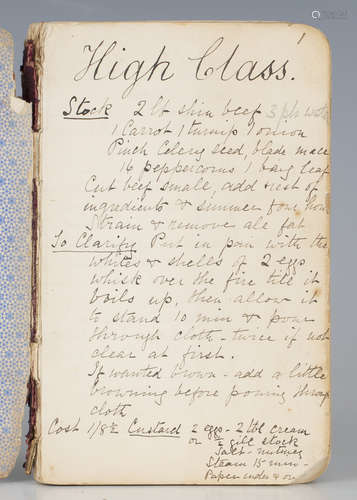 1
High Class.
Stock 2 lb shin beef 3 pts water
1 Carrot 1 turnip 1 onion
Pinch Celery seed, blade mace
16 peppercorns 1 bay leaf
Cut beef small, add rest of
ingredients & simmer four hours
Strain & remove all fat
To Clarify Put in pan with the
whites & shells of 2 eggs
whisk over the fire till it
boils up, then allow it
to stand 10 min & pour
through cloth - twice if not
clear at first.
If wanted brown - add a little
browning before pouring through
cloth
Cost 1/8½ Custard 2 eggs - 2 tbl cream
or ½ gill stock
Salt - nutmeg
Steam 15 min -
Paper under & over